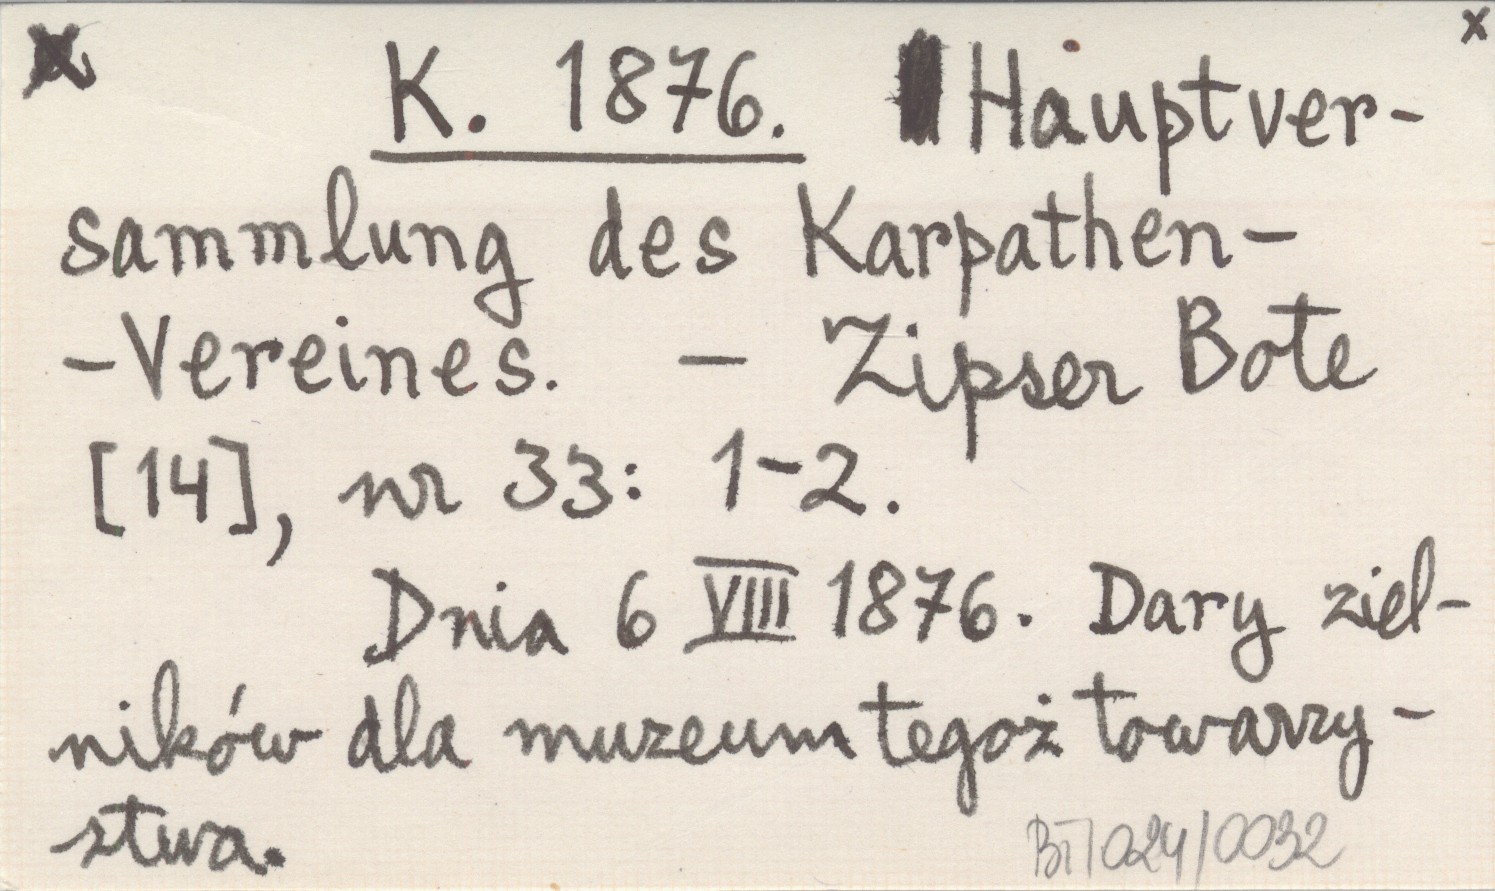 x
K. 1876. Hauptver-
sammlung des Karpathen-
-Vereines. — Zipser Bote
[14], nr 33: 1-2.
Dnia 6 VIII 1876. Dary ziel-
ników dla muzeum tegoż towarzy-
stwa.
BT/024/0032